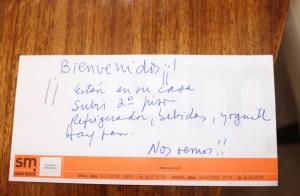 Bienvenidos¡!
¡¡ Están en su casa
Subir 2º piso
Refrigerador, bebidas, yogurth
Hay pan.
Nos vemos!!
sm